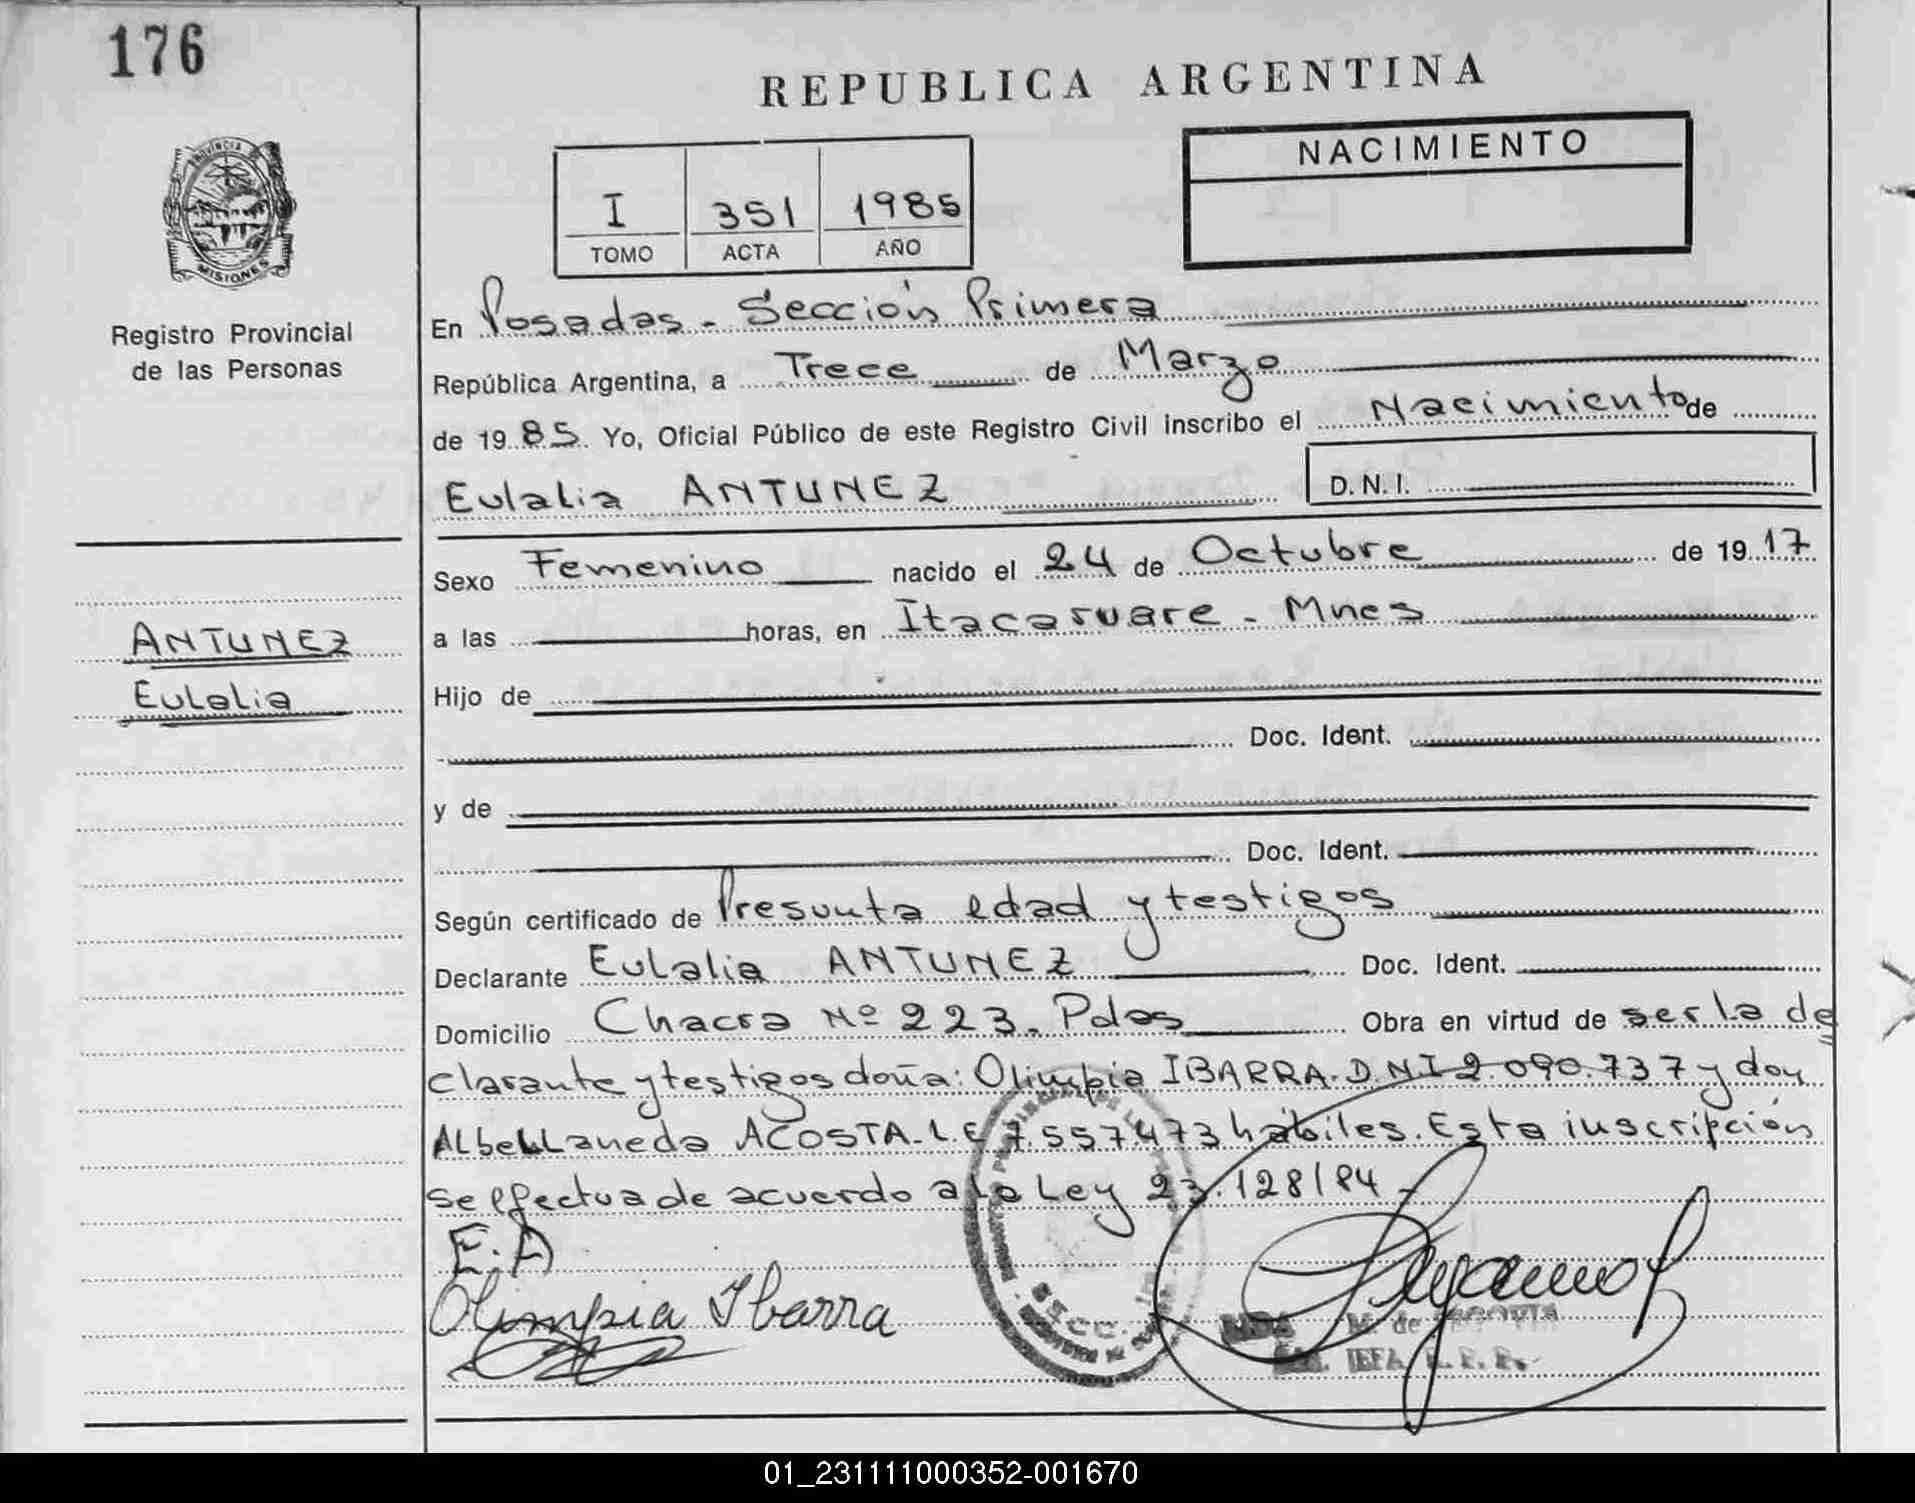 176
REPUBLICA ARGENTINA
PROVINCIA DE
MISIONES
Registro Provincial
de las Personas
I 351 1985
TOMO ACTA AÑO
NACIMIENTO
En Posadas - Sección Primera
República Argentina, a Trece de Marzo
de 1985 Yo, Oficial Público de este Registro Civil inscribo el Nacimiento de
Eulalia ANTUNEZ D.N.I.
Sexo Femenino nacido el 24 de Octubre de 1917
a las horas, en Itacaruare - Mnes
ANTUNEZ
Eulalia
Hijo de
Doc. Ident.
y de
Doc. Ident.
Según certificado de Presunta edad y testigos
Declarante Eulalia ANTUNEZ Doc. Ident.
Domicilio Chacra Nº 223. Pdas Obra en virtud de ser la de
clarante y testigos doña: Olimpia IBARRA. D.N.I 2.090.737 y don
ALbeLLaneda ACOSTA. L.E 7.557.473 hábiles. Esta inscripción
se efectua de acuerdo a la Ley 23.128/84
E. A
Olimpia Ibarra
M. de SEGOVIA
JEFA R. P. P.
01_231111000352-001670